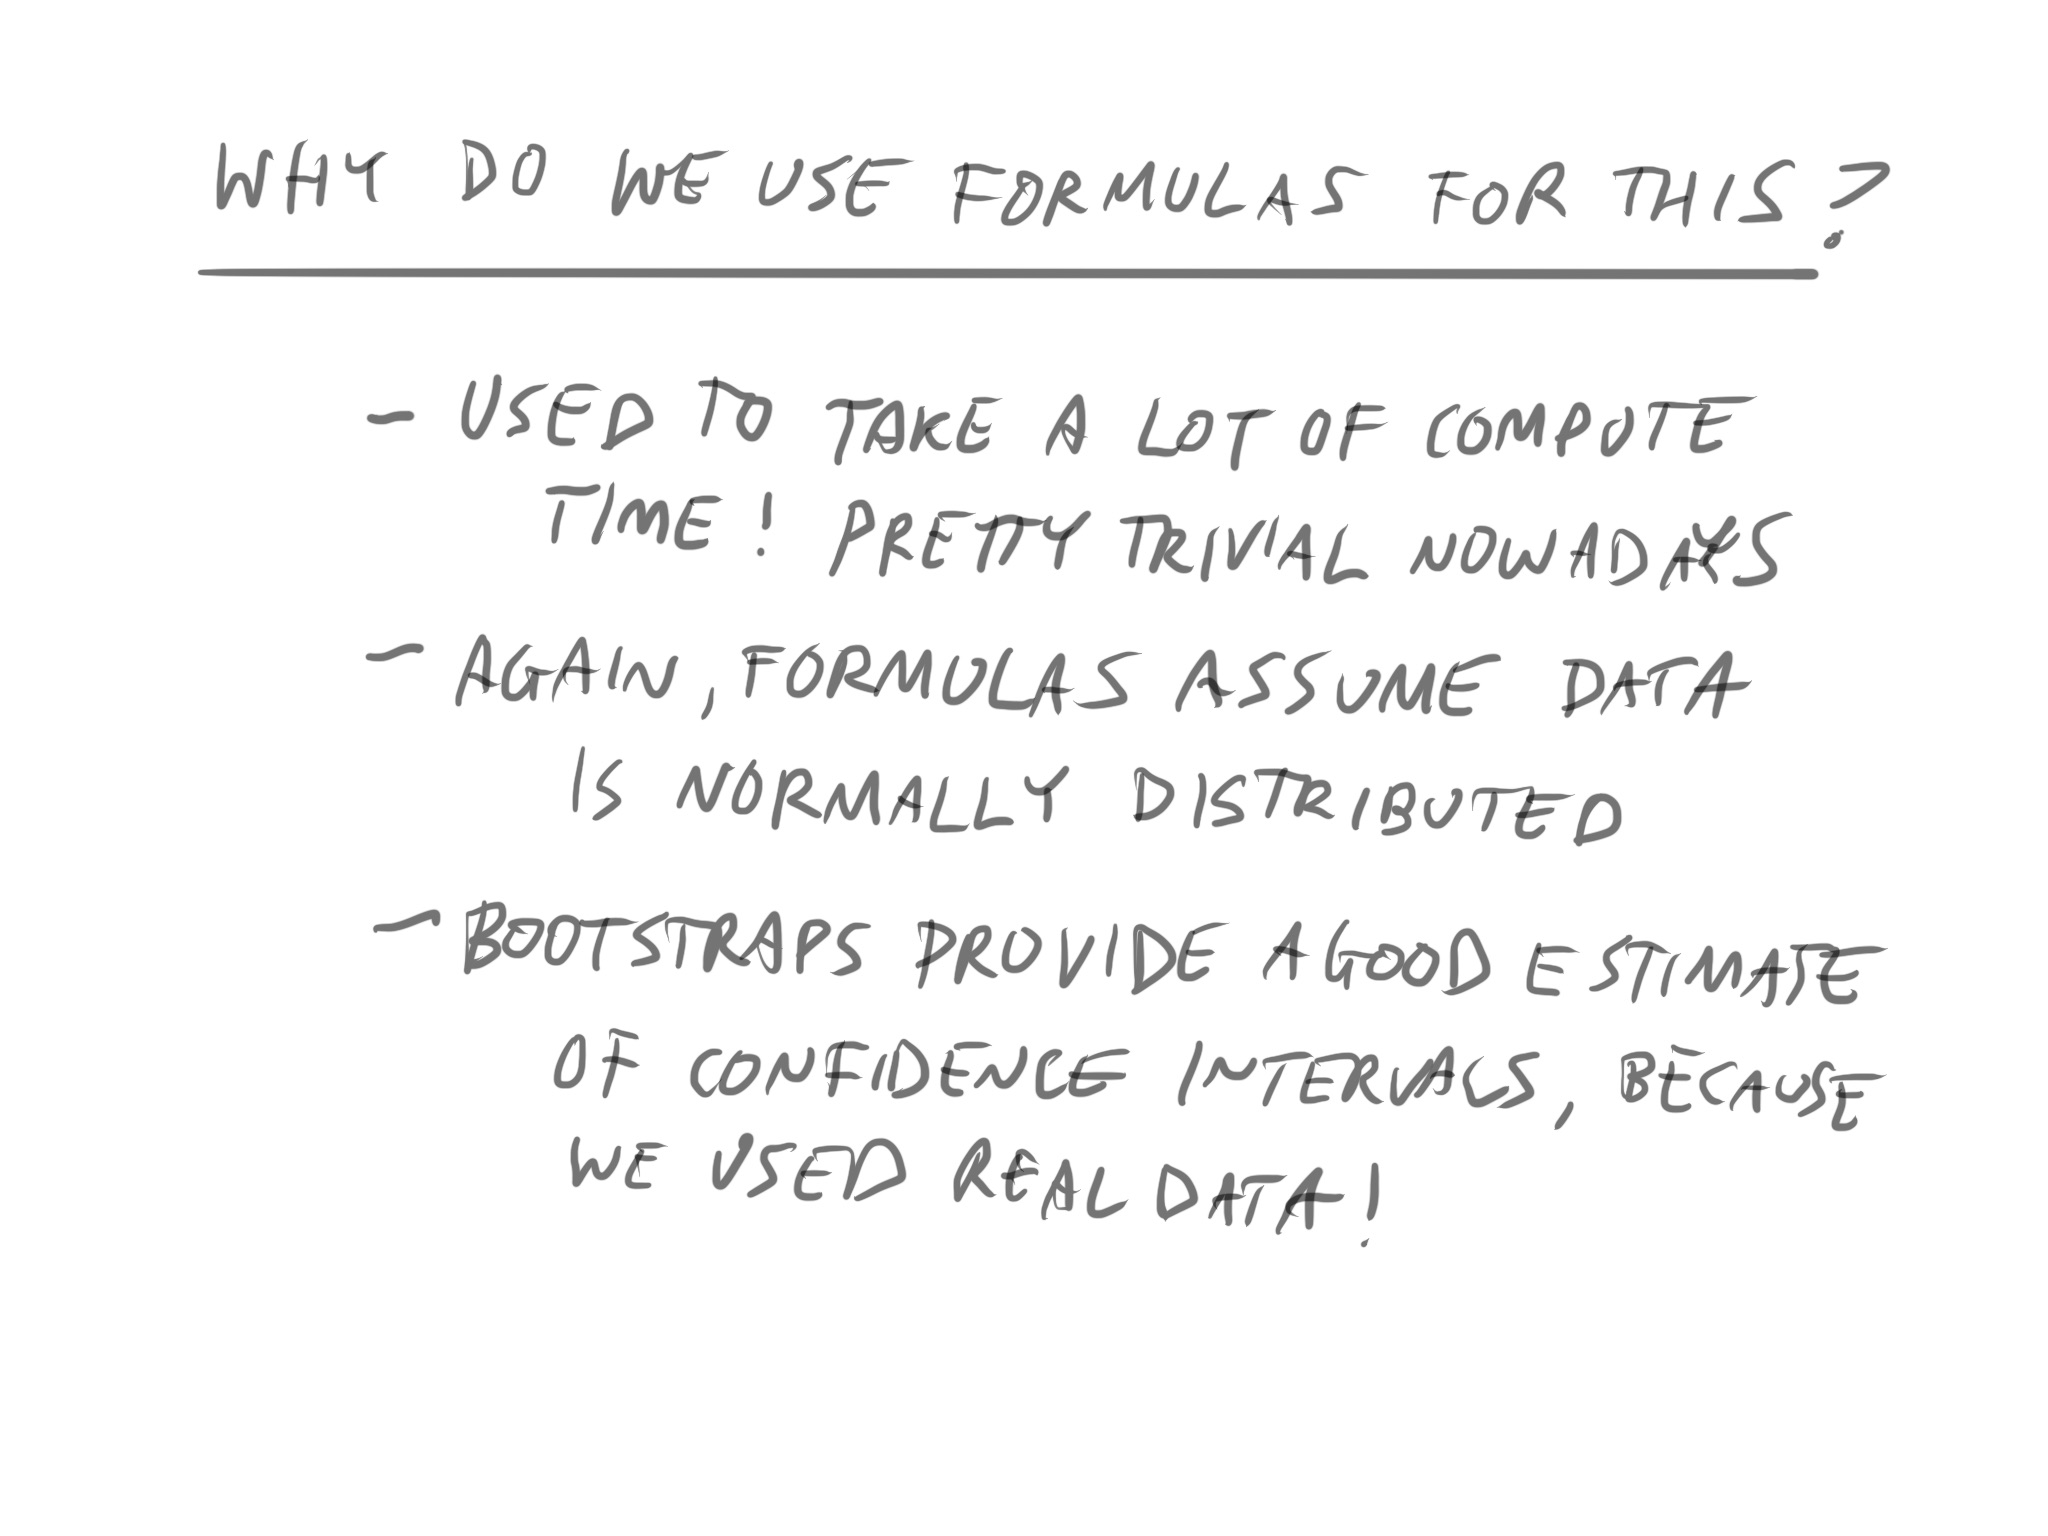 WHY DO WE USE FORMULAS FOR THIS?
- USED TO TAKE A LOT OF COMPUTE
TIME! PRETTY TRIVIAL NOWADAYS
- AGAIN, FORMULAS ASSUME DATA
IS NORMALLY DISTRIBUTED
- BOOTSTRAPS PROVIDE A GOOD ESTIMATE
OF CONFIDENCE INTERVALS, BECAUSE
WE USED REAL DATA!